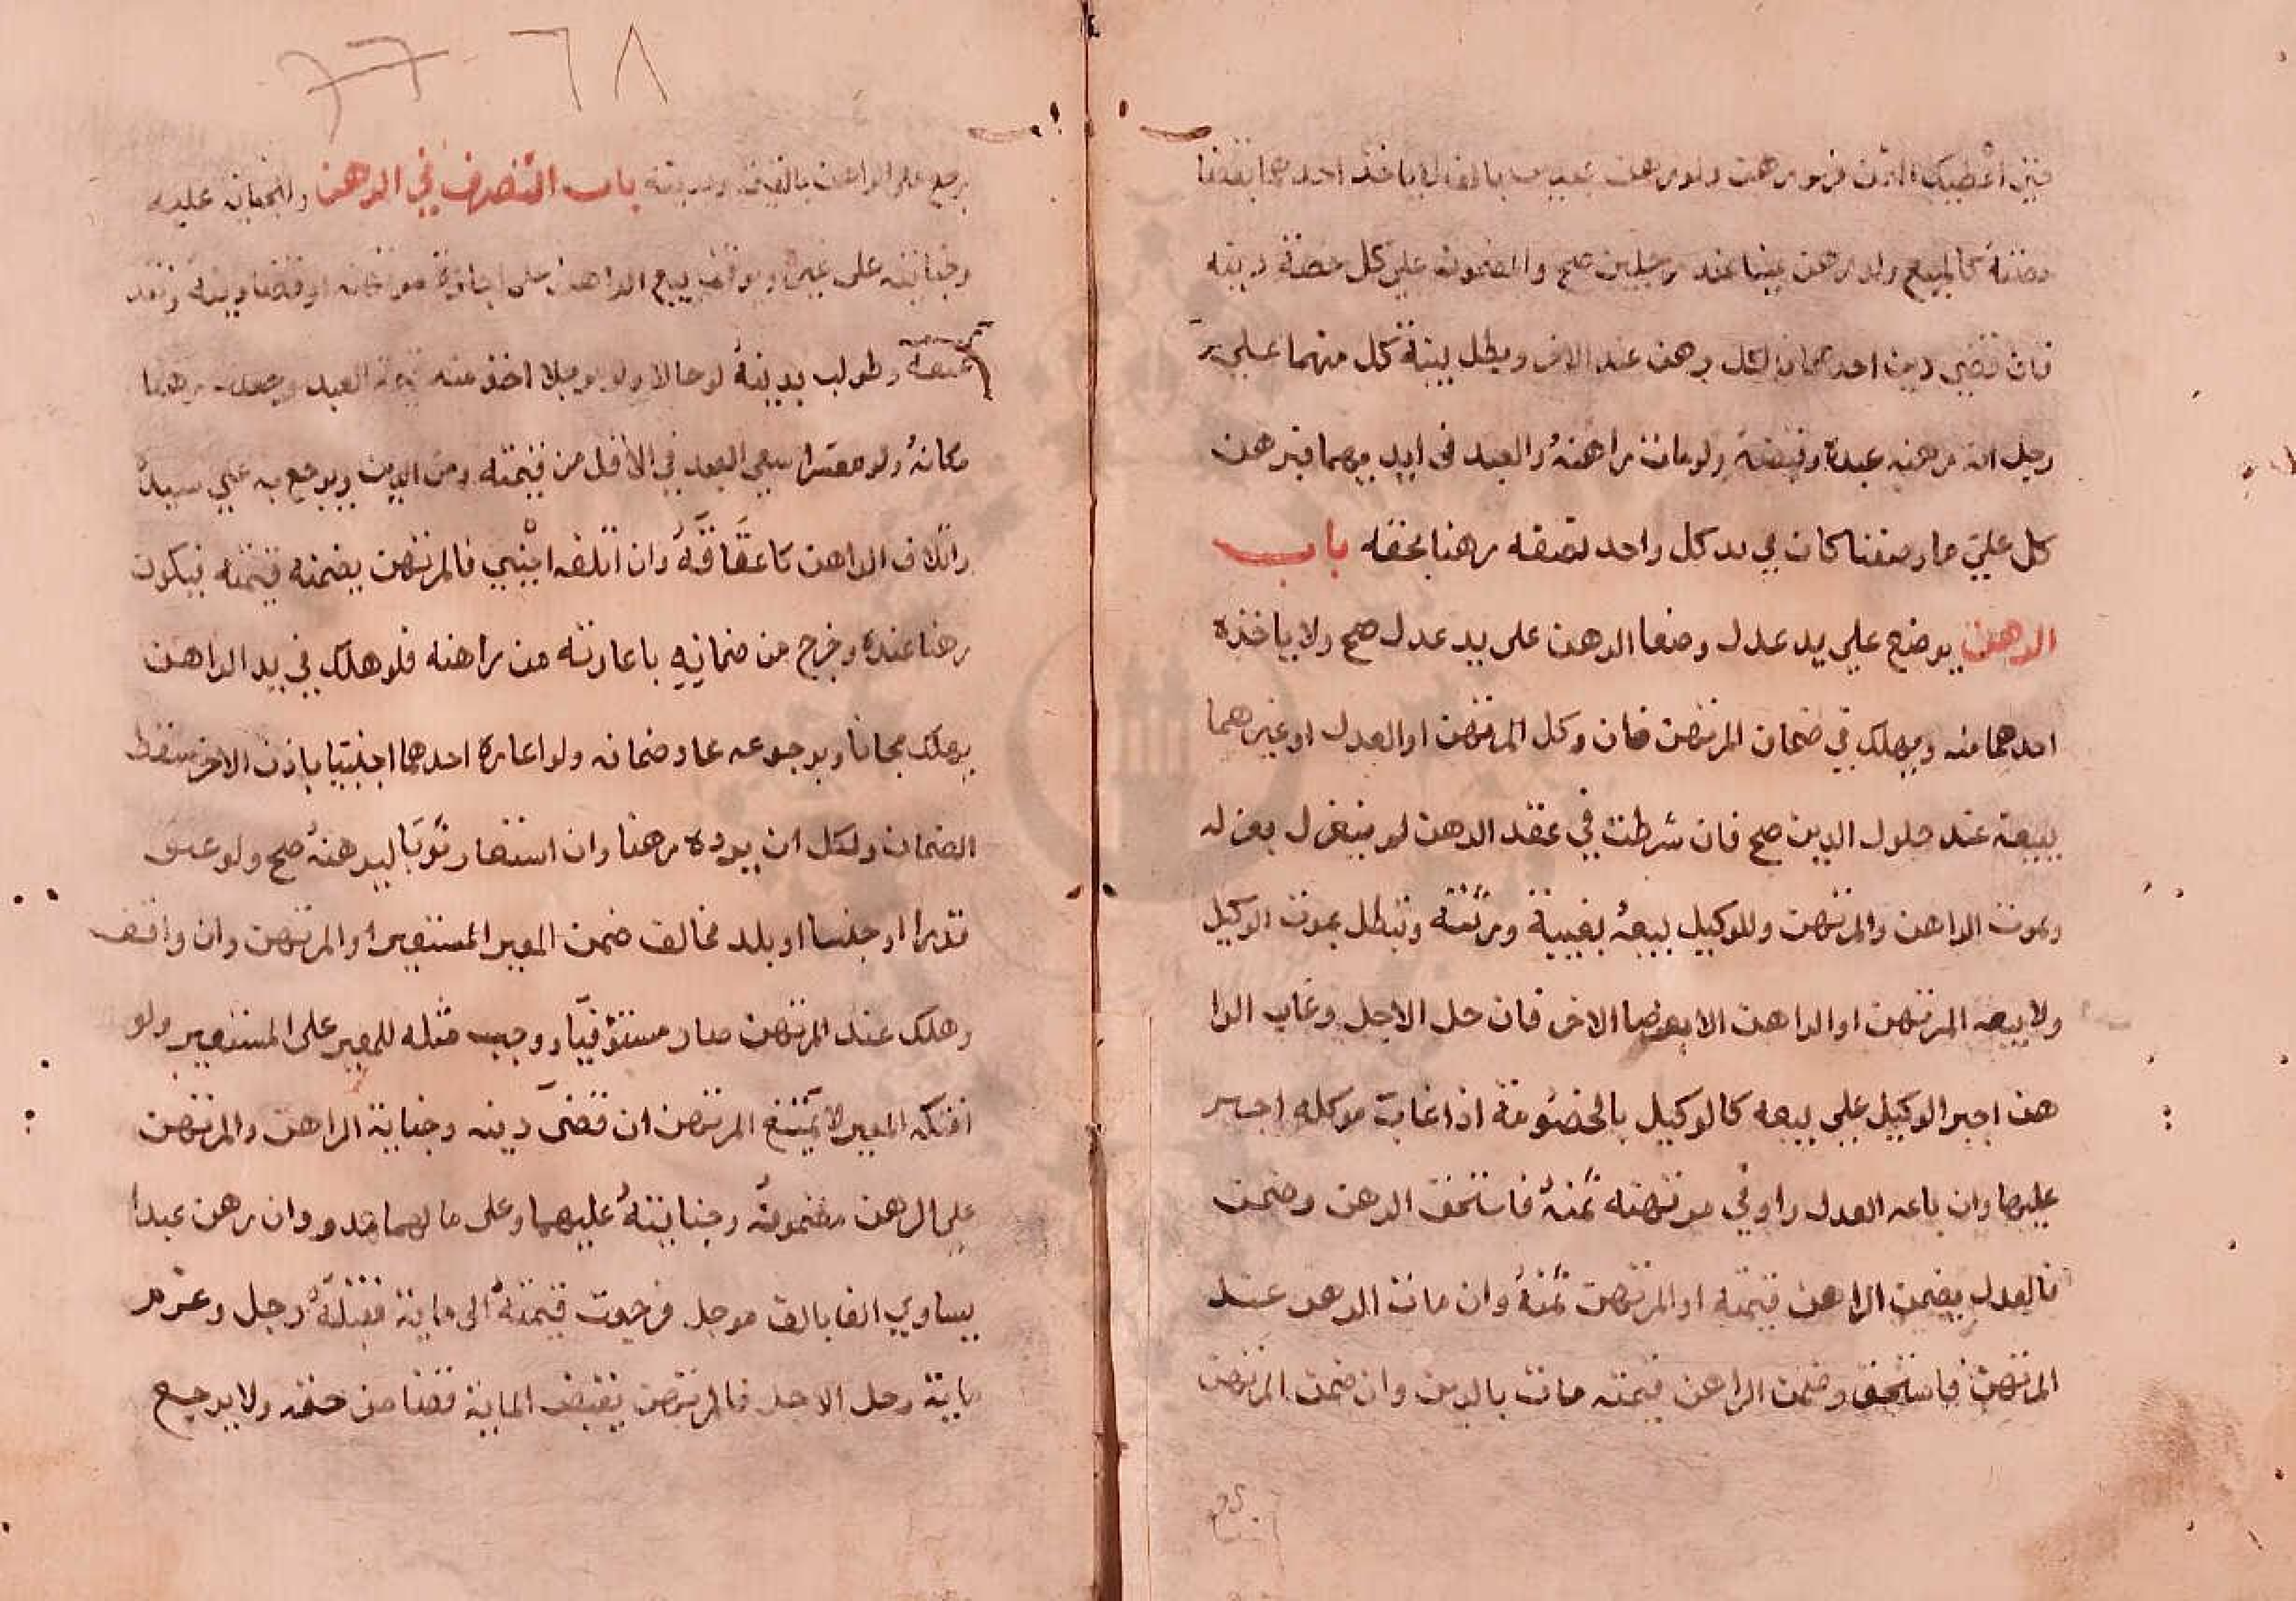 حتى اعطيك الثمن فهو رهن ولو رهن عبدين بالف لا ياخذ احدهما بقضا
حصته كالمبيع ولو رهن عينا عند رجلين صح والمضمون على كل حصة دينه
فان قضى دين احدهما فالكل رهن عند الاخر وبطل بينة كل منهما على
رجل انه رهنه عبده وقبضه ولو مات راهنه والعبد في ايديهما فبرهن
كل على ما وصفنا كان في يد كل واحد نصفه رهنا بحقه باب
الرهن يوضع على يد عدل وضعا الرهن على يد عدل صح ولا ياخذه
احدهما منه ويهلك في ضمان المرتهن فان وكل المرتهن او العدل او غيرهما
ببيعه عند حلول الدين صح فان شرطت في عقد الرهن لم ينعزل بعزله
وبموت الراهن والمرتهن وللوكيل بيعه بغيبة ورثته وتبطل بموت الوكيل
ولا يبيعه المرتهن او الراهن الا برضا الاخر فان حل الاجل وغاب الرا
هن اجبر الوكيل على بيعه كالوكيل بالخصومة اذا غاب موكله اجبر
عليها وان باعه العدل واوفى مرتهنه ثمنه فاستحق الرهن وضمن
فالعدل يضمن الراهن قيمته او المرتهن ثمنه وان مات الرهن عند
المرتهن فاستحق وضمن الراهن قيمته مات بالدين وان ضمن المرتهن
٦٨
يرجع على الراهن بالقيمة وبدينه باب التصرف في الرهن والجناية عليه
وجنايته على غيره ويوقف بيع الراهن على اجازة مرتهنه او قضا دينه ونفذ
عتقه وطولب بدينه لو حالا ولو موجلا اخذ منه قيمة العبد وجعلت رهنا
مكانه ولو معسرا سعى العبد في الاقل من قيمته ومن الدين ويرجع به على سيده
واتلاف الراهن كاعتاقه وان اتلفه اجنبي فالمرتهن يضمنه قيمته فيكون
رهنا عنده وخرج من ضمانه باعارته من راهنه فلو هلك في يد الراهن
يهلك مجانا وبرجوعه عاد ضمانه ولو اعاره احدهما اجنبيا باذن الاخر سقط
الضمان ولكل ان يرده رهنا وان استعار ثوبا ليرهنه صح ولو عين
قدرا او جنسا او بلد فخالف ضمن المعير المستعير او المرتهن وان وافق
وهلك عند المرتهن صار مستوفيا ووجب مثله للمعير على المستعير ولو
افتكه المعير لا يمتنع المرتهن ان قضى دينه وجناية الراهن والمرتهن
على الرهن مضمونة وجنايته عليهما وعلى مالهما هدر وان رهن عبدا
يساوي الفا بالف موجل فرجعت قيمته الى ماية فقتله رجل وغرم
ماية وحل الاجل فالمرتهن يقبض الماية قضا من حقه ولا يرجع